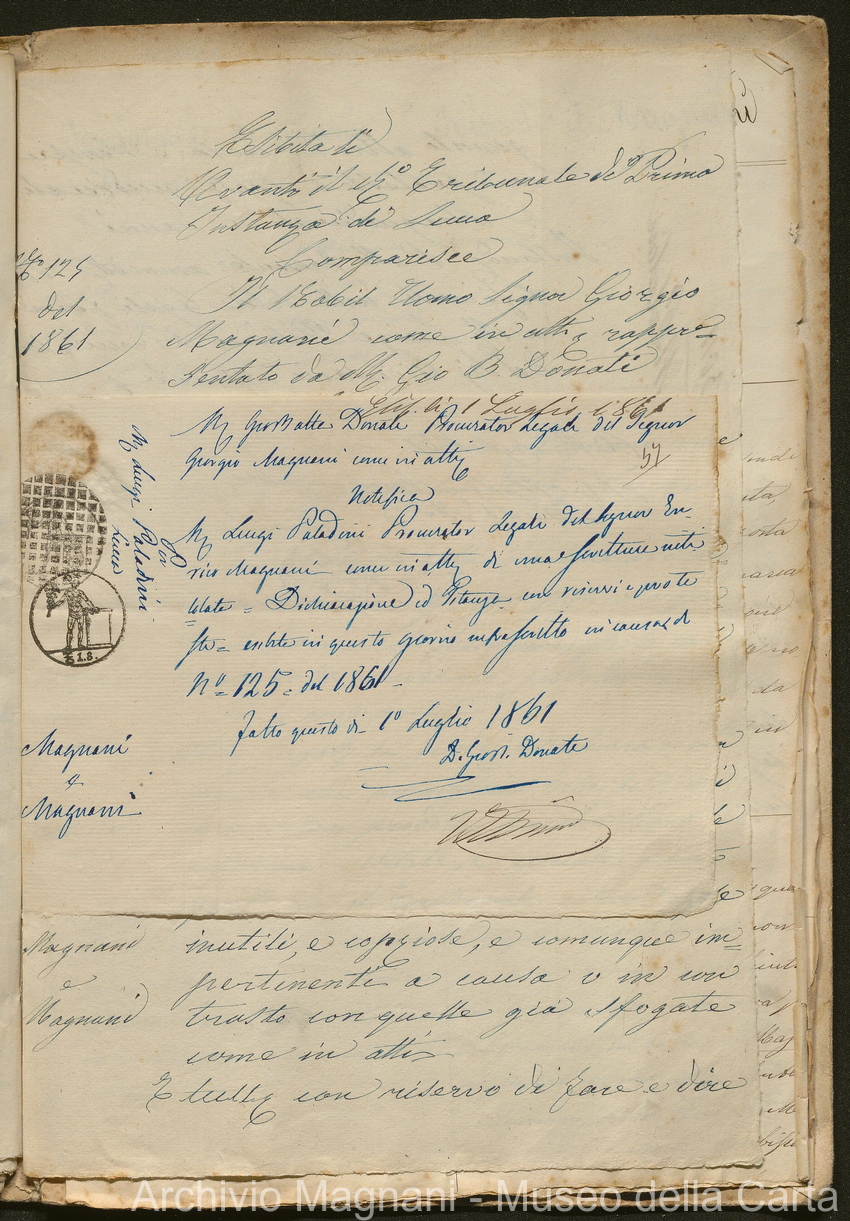 Esibita li
Avanti il Ill.º Tribunale di Prima
Instanza di Lucca
Comparisce
Il Nobil Uomo Signor Giorgio
Magnani come in atti rappre=
sentato da M. Gio B. Donati
Nº 125
del
1861
Esib. li 1 Luglio 1861
57
M. Giov Batta Donati Procurator Legale del Signor
Giorgio Magnani come in atti
Notifica
M. Luigi Paladini Procurator Legale del Signor En=
rico Magnani come in atti di una scrittura inti
tolata = Dichiarazione ed Istanze con riservi e prote
ste = esibita in questo giorno infrascritto in causa di
Nº = 125 = del 1861 -
fatto questo di 1º Luglio 1861
D. Giov. Donati
M. Luigi Paladini
Per
Lucca
1.8.
Magnani
e
Magnani
Magnani
e
Magnani
inutili, e copiose, e comunque im=
pertinenti a causa o in con
trasto con quelle già sfogate
come in atti
E tutto con riservo di fare e dire
Archivio Magnani - Museo della Carta